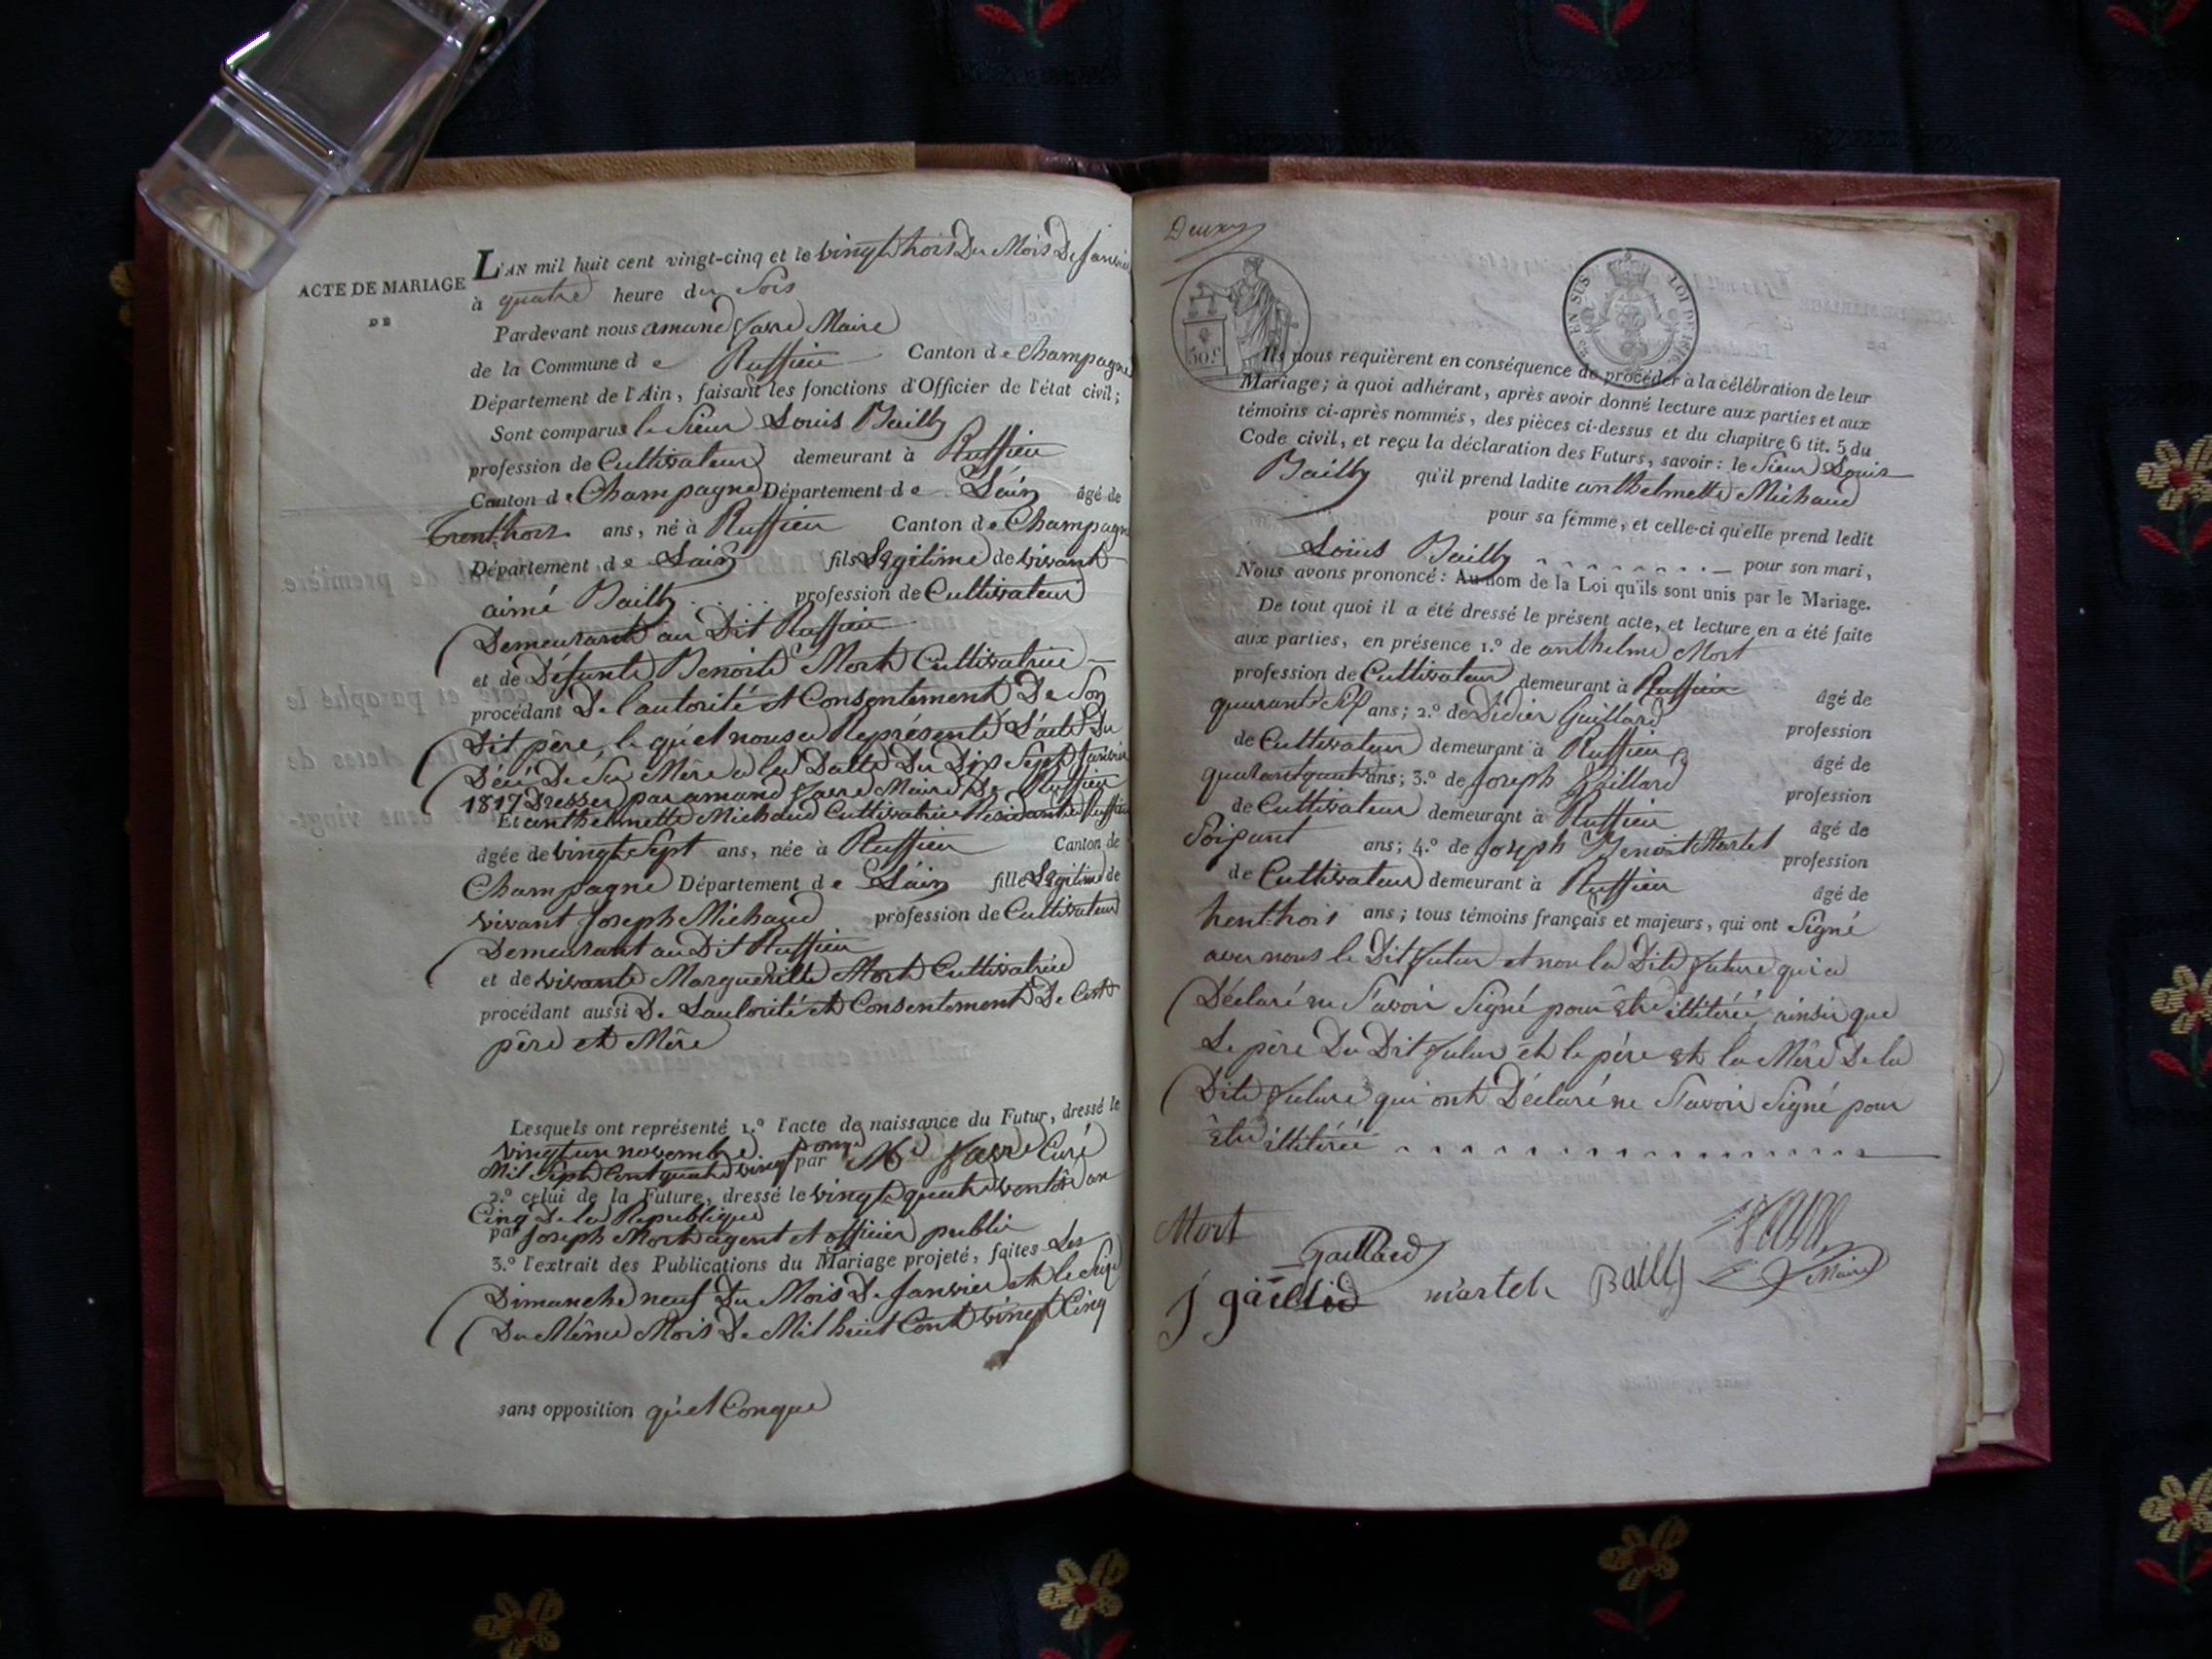 ACTE DE MARIAGE
DE
L'AN mil huit cent vingt-cinq et le vingt trois Du Mois De Janvier
à quatre heure du Soir
Pardevant nous amand favre Maire
de la Commune de Ruffieu Canton de Champagne
Département de l'Ain, faisant les fonctions d'Officier de l'état civil;
Sont comparus le Sieur Louis Bailly
profession de Cultivateur demeurant à Ruffieu
Canton de Champagne Département de Láin âgé de
trent trois ans, né à Ruffieu Canton de Champagne
Département de Lain fils Légitime de vivant
aimé Bailly profession de Cultivateur
Demeurant au Dit Ruffieu
et de Défunte Benoite Mort Cultivatrice
procédant De l'autorité et Consentement De Son
Dit père, le quel nous a Représenté L'acte Du
Décé De Sa Mère a la Datte Du Dix Sept Janvier
1817 Dresser par amand favre Maire De Ruffieu
Et anthelmette Michaud Cultivatrice Residante a Ruffieu
âgée de vingt Sept ans, née à Ruffieu Canton de
Champagne Département de Láin fille Légitime de
vivant Joseph Michaud profession de Cultivateur
Demeurant au Dit Ruffieu
et de vivante Marguerite Mort Cultivatrice
procédant aussi De Lautorité et Consentement De Cest
père et Mère
Lesquels ont représenté 1.º l'acte de naissance du Futur, dressé le
vingt un novembre
Mil Sept Cent quatre vingt onze par Mr favre Curé
2.º celui de la Future, dressé le vingt quatre ventôse an
Cinq De la Republique
par Joseph Mort agent et officier public
3.º l'extrait des Publications du Mariage projeté, faites Les
Dimanche neuf Du Mois De Janvier et le Seize
Du Même Mois De Mil huit Cent vingt Cinq
sans opposition quel Conque
Deux
50 c
25 EN SUS LOI DE 1816
Ils nous requièrent en conséquence de procéder à la célébration de leur
Mariage; à quoi adhérant, après avoir donné lecture aux parties et aux
témoins ci-après nommés, des pièces ci-dessus et du chapitre 6 tit. 5 du
Code civil, et reçu la déclaration des Futurs, savoir: le Sieur Louis
Bailly qu'il prend ladite anthelmette Michaud
pour sa femme, et celle-ci qu'elle prend ledit
Louis Bailly pour son mari,
Nous avons prononcé: Au nom de la Loi qu'ils sont unis par le Mariage.
De tout quoi il a été dressé le présent acte, et lecture en a été faite
aux parties, en présence 1.º de anthelme Mort
profession de Cultivateur demeurant à Ruffieu âgé de
quarant Six ans; 2.º de Didier Gaillard profession
de Cultivateur demeurant à Ruffieu âgé de
quarant quatre ans; 3.º de Joseph Gaillard profession
de Cultivateur demeurant à Ruffieu âgé de
Soixant ans; 4.º de Joseph Benoit Martel profession
de Cultivateur demeurant à Ruffieu âgé de
trent trois ans; tous témoins français et majeurs, qui ont Signé
avec nous le Dit futur et non la Dite future qui a
Déclaré ne Savoir Signé pour être illitéré, ainsi que
Le père Du Dit futur et le père et la Mère De la
Dite future qui ont Déclaré ne Savoir Signé pour
être illitérée
Mort
Gaillard
j gaillard martel Bailly
Maire